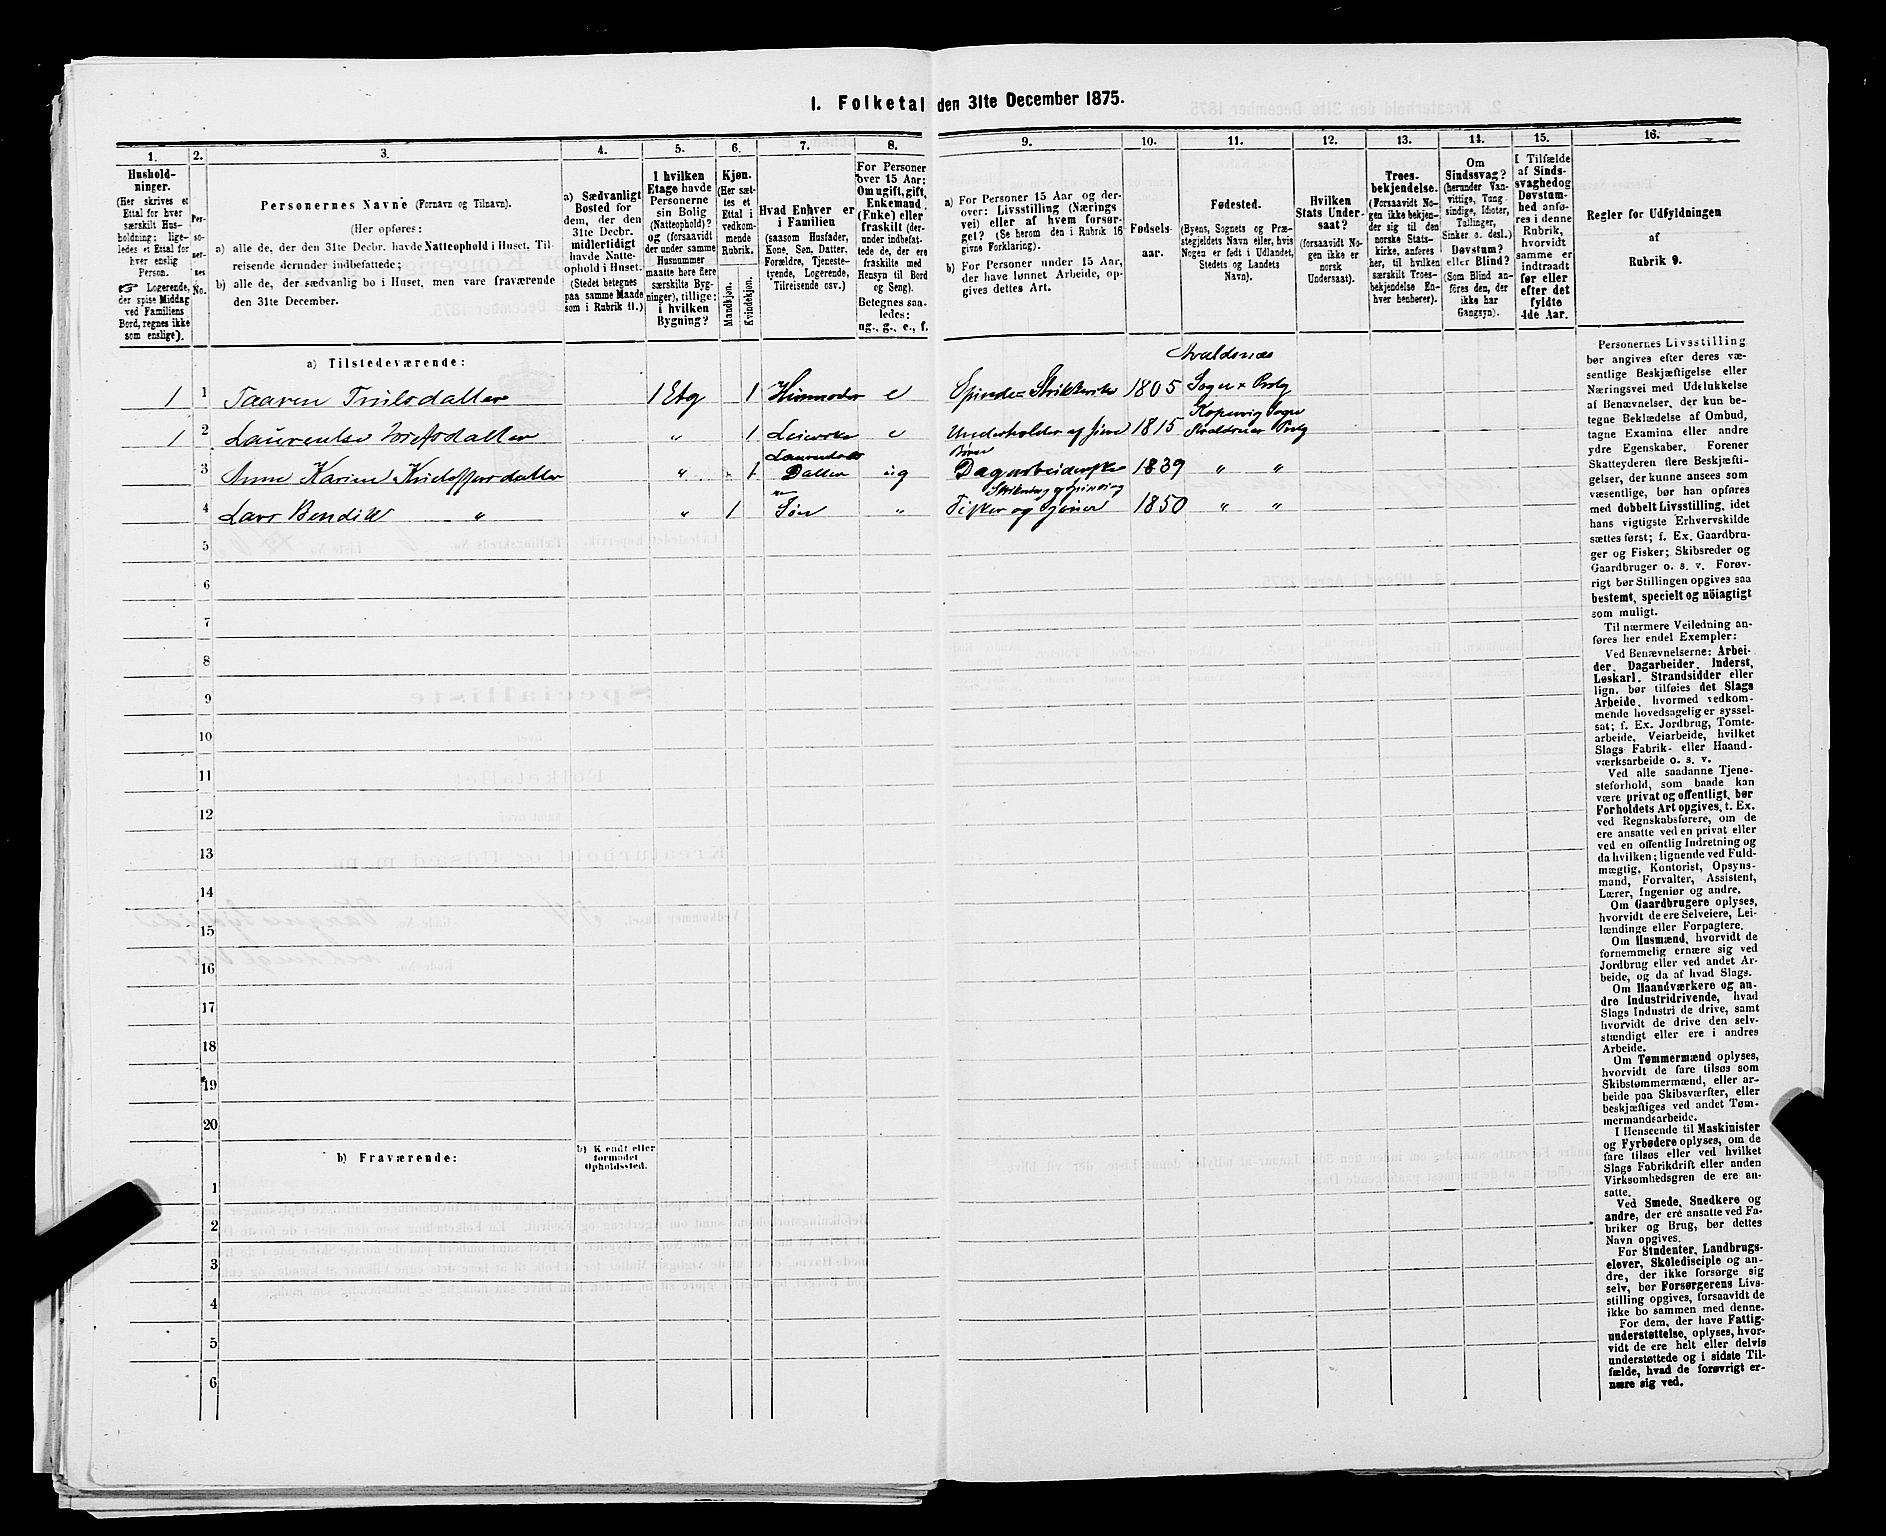 I. Folketal den 31te December 1875.
1. 2. 3. 4. 5. 6. 7. 8. 9. 10. 11. 12. 13. 14. 15. 16.
Hushold-
ninger.
(Her skrives et
Ettal for hver
særskilt Hus-
holdning; lige-
ledes et Ettal for
hver enslig
Person.
☞ Logerende,
der spise Middag
ved Familiens
Bord, regnes ikke
som enslige).
Per-
so-
ner-
nes
No.
Personernes Navne (Fornavn og Tilnavn).
(Her opføres:
a) alle de, der den 31te Decbr. havde Natteophold i Huset, Til-
reisende derunder indbefattede;
b) alle de, der sædvanlig bo i Huset, men vare fraværende
den 31te December.
a) Sædvanligt
Bosted for
dem, der den
31te Decbr.
midlertidigt
havde Natte-
ophold i Huset.
(Stedet betegnes
paa samme Maade
som i Rubrik 11.)
I hvilken
Etage havde
Personerne
sin Bolig
(Natteophold)?
og (forsaavidt
der under samme
Husnummer
maatte høre flere
særskilte Byg-
ninger), tillige:
i hvilken
Bygning?
Kjøn.
(Her sæt-
tes et
Ettal i
vedkom-
mende
Rubrik.
Mandkjøn.
Kvindekjøn.
Hvad Enhver er
i Familien
(saasom Husfader,
Kone, Søn, Datter,
Forældre, Tjeneste-
tyende, Logerende,
Tilreisende osv.)
For Personer
over 15 Aar:
Om ugift, gift,
Enkemand
(Enke) eller
fraskilt (der-
under indbefat-
tede de, der ere
fraskilte med
Hensyn til Bord
og Seng).
Betegnes saa-
ledes:
ug., g., e., f.
a) For Personer 15 Aar og der-
over: Livsstilling (Nærings
vei) eller af hvem forsør-
get? (Se herom den i Rubrik 16
givne Forklaring).
b) For Personer under 15 Aar,
der have lønnet Arbeide, op-
gives dettes Art.
Fødsels-
aar.
Fødested.
(Byens, Sognets og Præ-
stegjeldets Navn eller, hvis
Nogen er født i Udlandet,
Stedets og Landets
Navn).
Hvilken
Stats Under-
saat?
(forsaavidt No-
gen ikke er
norsk
Undersaat).
Troes-
bekjendelse.
(Forsaavidt No-
gen ikke bekjen-
der sig til den
norske Stats-
kirke, anføres
her, til hvilken
særskilt Troes-
bekjendelse En-
hver henhører).
Om
Sindssvag?
(herunder Van-
vittige, Tung-
sindige, Idioter,
Tullinger,
Sinker o. desl.)
Døvstum?
eller Blind?
(Som Blind an-
føres den, der
ikke har
Gangsyn).
I Tilfælde
af Sinds-
svaghedog
Døvstum-
hed anfø-
res i denne
Rubrik,
hvorvidt
samme er
indtraadt
før eller
efter det
fyldte
4de Aar.
Regler for Udfyldningen
af
Rubrik 9.
a) Tilstedeværende:
Avaldsnæs
1 1 Taaren Trulsdatter 1 Etg 1 Huusmoder e Spinde= Strikkerske 1805 Sogn Prstg
Kopervig Sogn
1 2 Laurentse Josefsdatter „ 1 Leierske e Underholdes af sine 1815 Avaldsnæs Prstg
Børn
3 Anne Karine Kristoffersdatter „ 1 Datter ug Dagarbeiderske 1839 „ „
Strikning og Spinding
4 Lars Bendik „ „ 1 Søn „ Fisker og Sjømand 1850 „ „
5
6
7
8
9
10
11
12
13
14
15
16
17
18
19
20
b) Fraværende:
b) Kjendt eller
formodet
Opholdssted.
1
2
3
4
5
6
Personernes Livsstilling
bør angives efter deres væ-
sentlige Beskjæftigelse eller
Næringsvei med Udelukkelse
af Benævnelser, der kun be-
tegne Beklædelse af Ombud,
tagne Examina eller andre
ydre Egenskaber. Forener
Skatteyderen flere Beskjæfti-
gelser, der kunne ansees som
væsentlige, bør han opføres
med dobbelt Livsstilling, idet
hans vigtigste Erhvervskilde
sættes først; f. Ex. Gaardbru-
ger og Fisker; Skibsreder og
Gaardbruger o. s. v. Forøv-
rigt bør Stillingen opgives saa
bestemt, specielt og nöiagtigt
som muligt.
Til nærmere Veiledning an-
føres her endel Exempler:
Ved Benævnelserne: Arbei-
der, Dagarbeider, Inderst,
Løskarl, Strandsidder eller
lign. bør tilføies det Slags
Arbeide, hvormed vedkom-
mende hovedsagelig er syssel-
sat; f. Ex. Jordbrug, Tomte-
arbeide, Veiarbeide, hvilket
Slags Fabrik- eller Haand-
værksarbeide o. s. v.
Ved alle saadanne Tjene-
steforhold, som baade kan
være privat og offentligt, bør
Forholdets Art opgives, t. Ex.
ved Regnskabsførere, om de
ere ansatte ved en privat eller
ved en offentlig Indretning og
da hvilken; lignende ved Fuld-
mægtig, Kontorist, Opsyns-
mand, Forvalter, Assistent,
Lærer, Ingeniør og andre.
Om Gaardbrugere oplyses,
hvorvidt de ere Selveiere, Lei-
lændinge eller Forpagtere.
Om Husmænd, hvorvidt de
fornemmelig ernære sig ved
Jordbrug eller ved andet Ar-
beide, og da af hvad Slags.
Om Haandværkere og an-
dre Industridrivende, hvad
Slags Industri de drive, samt
hvorvidt de drive den selv-
stændigt eller ere i andres
Arbeide.
Om Tømmermænd oplyses,
hvorvidt de fare tilsøs som
Skibstømmermænd, eller ar-
beide paa Skibsværfter, eller
beskjæftiges ved andet Tøm-
mermandsarbeide.
I Henseende til Maskinister
og Fyrbødere oplyses, om de
fare tilsøs eller ved hvilket
Slags Fabrikdrift eller anden
Virksomhedsgren de ere an-
satte.
Ved Smede, Snedkere og
andre, der ere ansatte ved Fa-
briker og Brug, bør dettes
Navn opgives.
For Studenter, Landbrugs-
elever, Skoledisciple og an-
dre, der ikke forsørge sig
selv, bør Forsørgerens Livs-
stilling opgives, forsaavidt de
ikke bo sammen med denne.
For dem, der have Fattig-
understøttelse, oplyses, hvor-
vidt de ere helt eller delvis
understøttede og i sidste Til-
fælde, hvad de forøvrigt er-
nære sig ved.